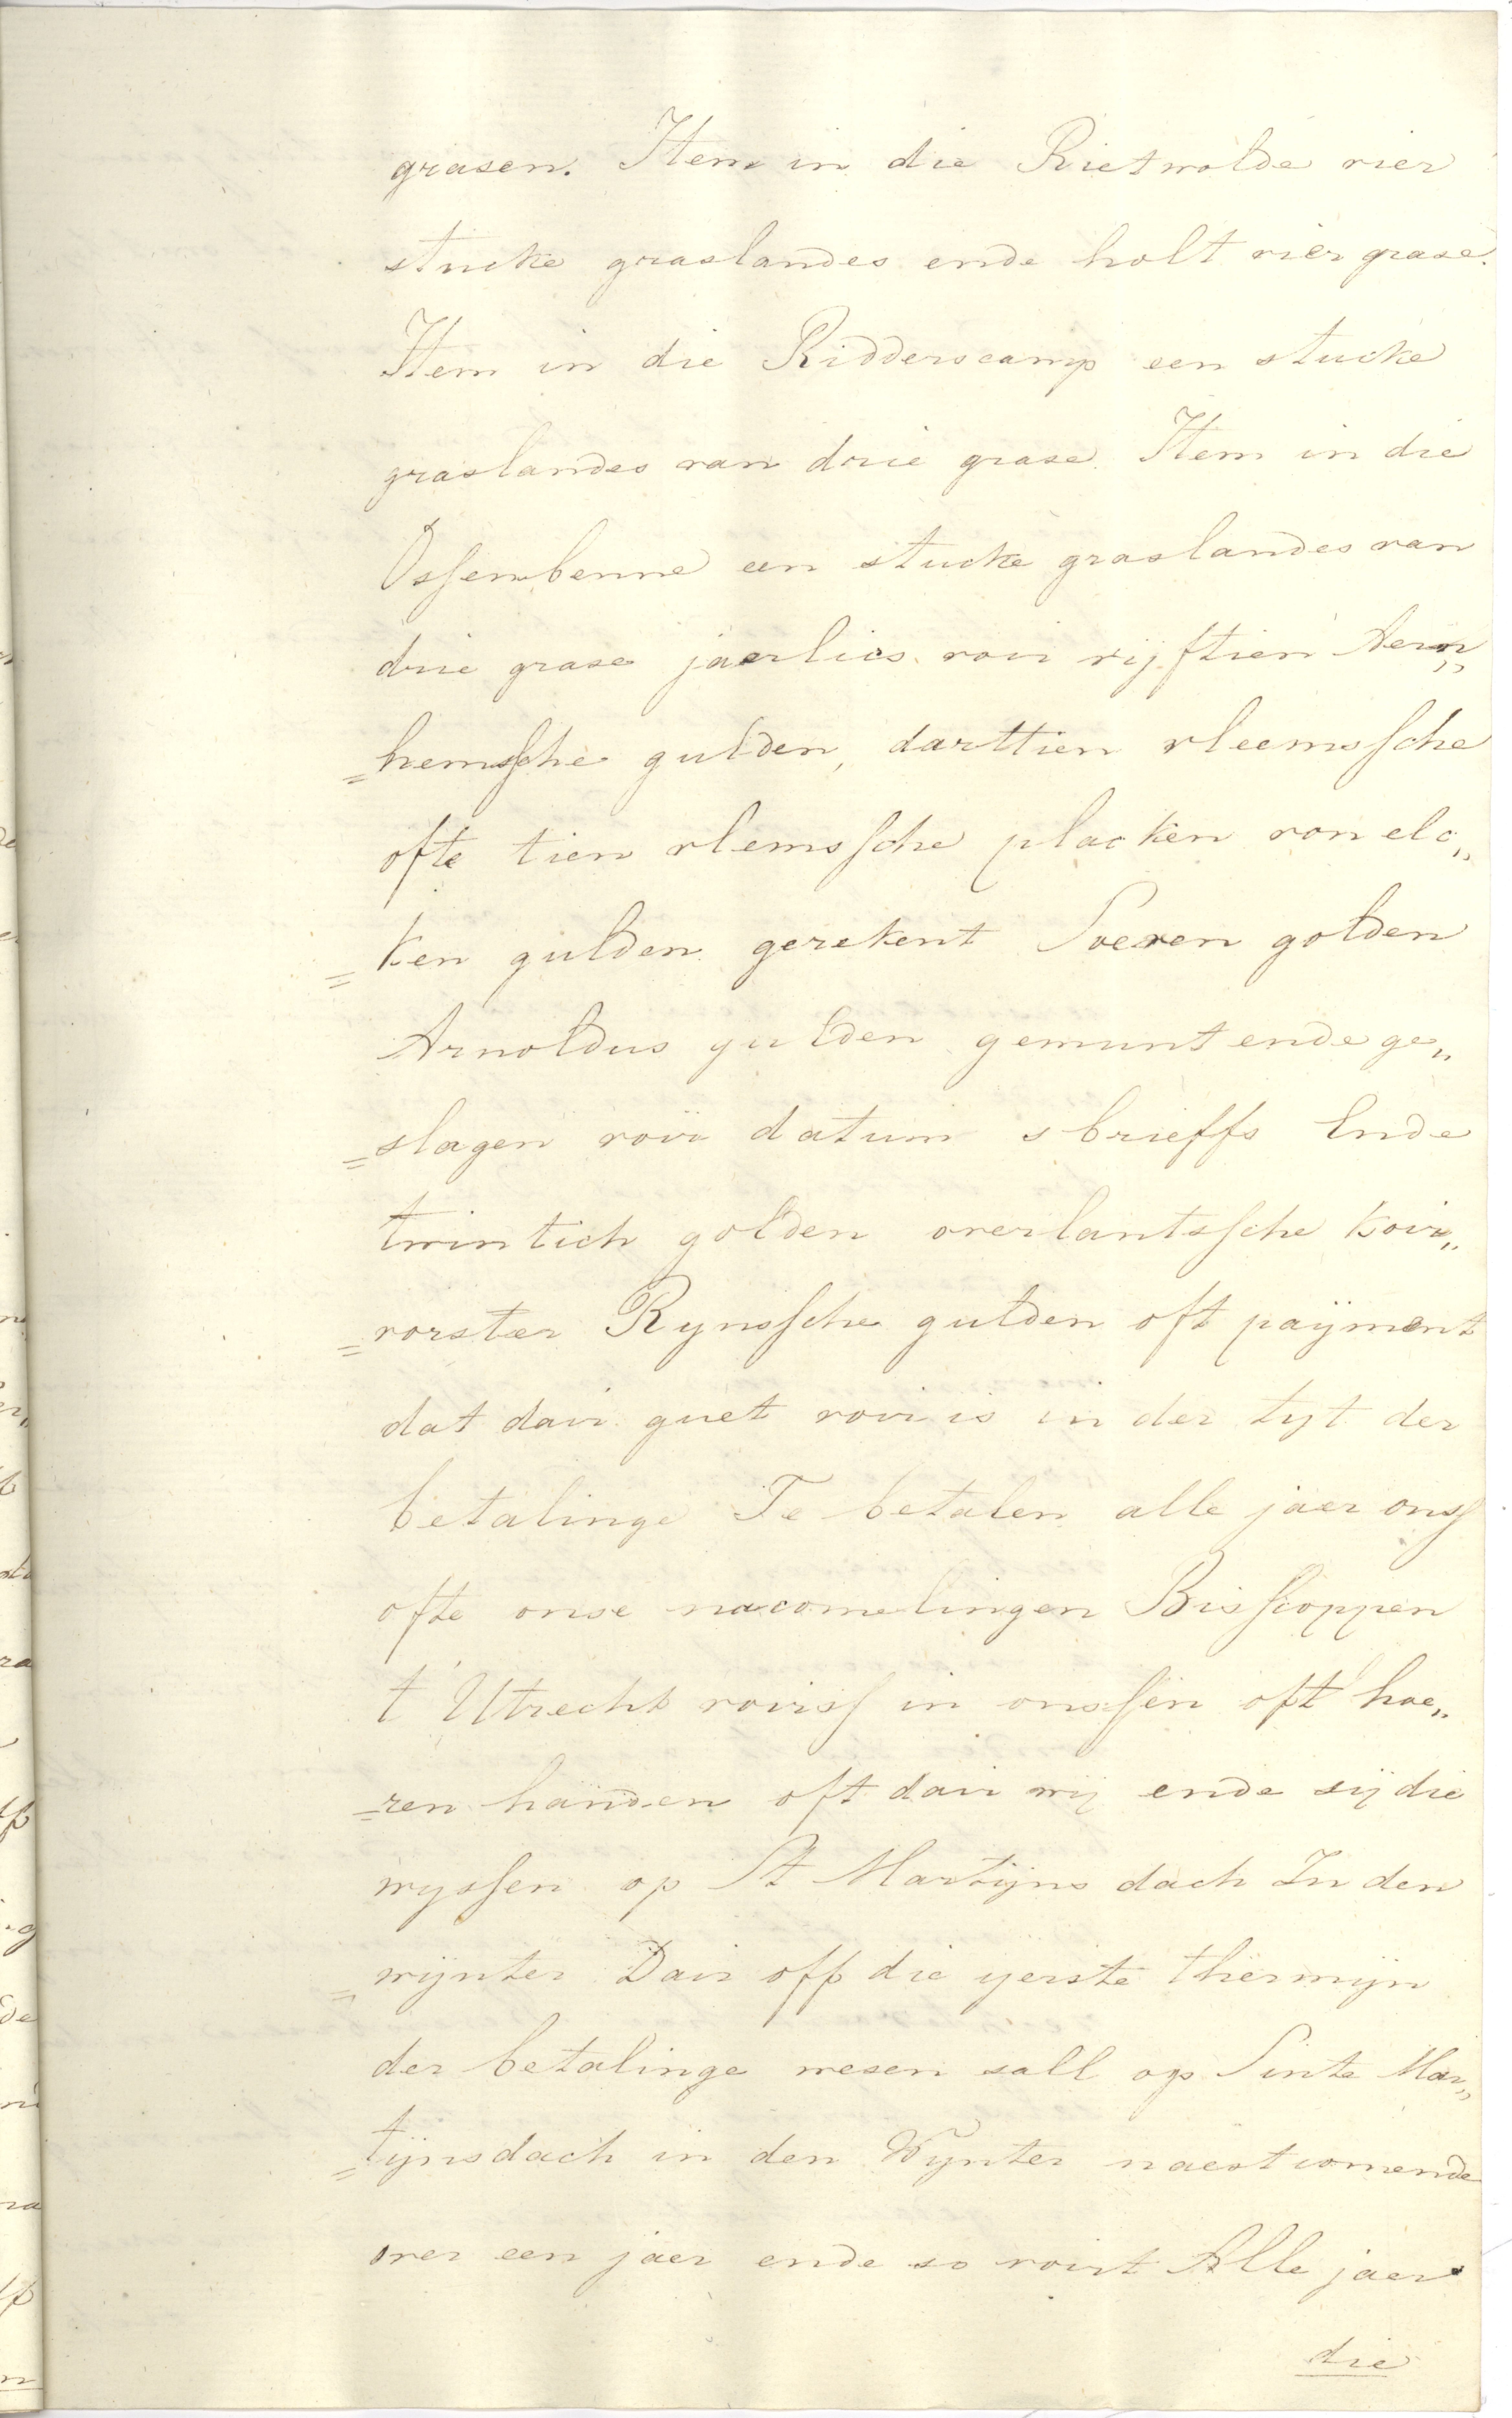 grasen. Item in die Rietwolde vier
stucke graslandes ende holt vier grase.
Item in die Ridderscamp een stucke
graslandes van drie grase. Item in die
Ossenbenne een stucke graslandes van
drie grase jaerlics voir vijftien Aern„
=hemssche gulden, darttien vleemssche
ofte tien vlemssche placken von elc„
=ken gulden gerekent Soeven golden
Arnoldus gulden gemunt ende ge„
=slagen voir datum sbrieffs Ende
twintich golden overlantssche koir„
=vorster Rynssche gulden oft payment
dat dair guet voir is in der tyt der
betalinge Te betalen alle jaer onss
ofte onse nacomelingen Bisscoppen
t' Utrecht voirss in onssen oft hae„
=ren handen oft dair wij ende sij die
wyssen op St Martijns dach In den
=wijnter Dair off die yerste thermijn
der betalinge wesen sall op Sinte Mar„
=tijnsdach in den Wynter naestcomende
over een jaer ende so voirt Alle jaer
die